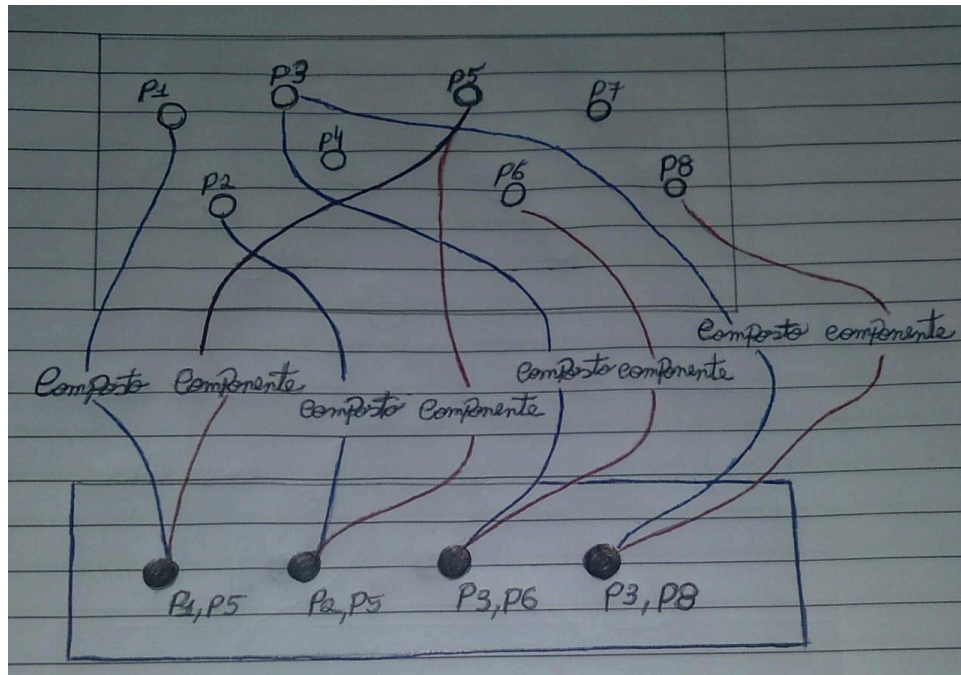 P1 P3 P5 P7
P2 P4 P6 P8
Composto componente
Composto Componente
Composto componente
Composto Componente
P1,P5 P2,P5 P3,P6 P3,P8